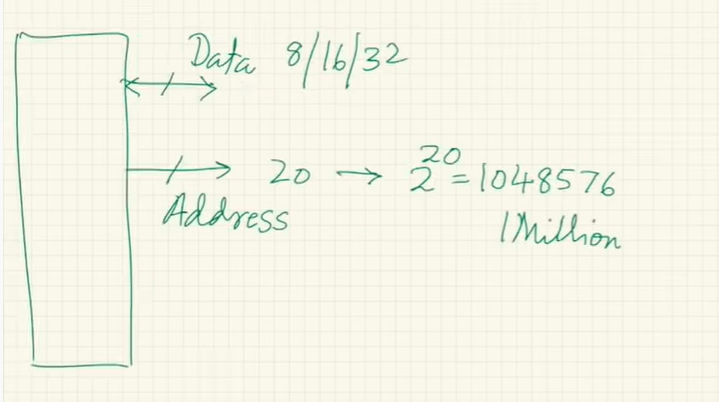 Data 8/16/32
20 → 2^20 = 1048576
Address
1 Million